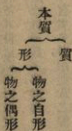 本質
質
形
物之自形
物之偶形